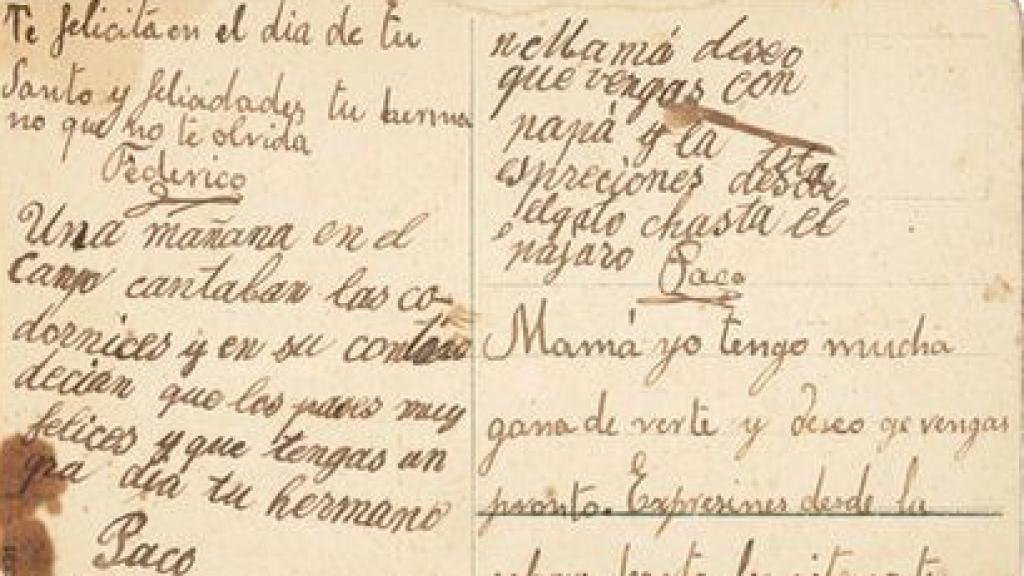 Te felicita en el dia de tu
Santo y feliadades tu herma
no que no te olvida
Federico
Una mañana en el
Campo cantaban las co-
dornices y en su
decian que los muy
felices y que tengas un
gra dia tu hermano
Paco
neMamá deseo
que vengas con
papá y la
espreciones desde
el gato chasta el
pajaro
Paco
Mamá yo tengo mucha
gana de verte y deseo qe vengas
pronto. Expresines desde la